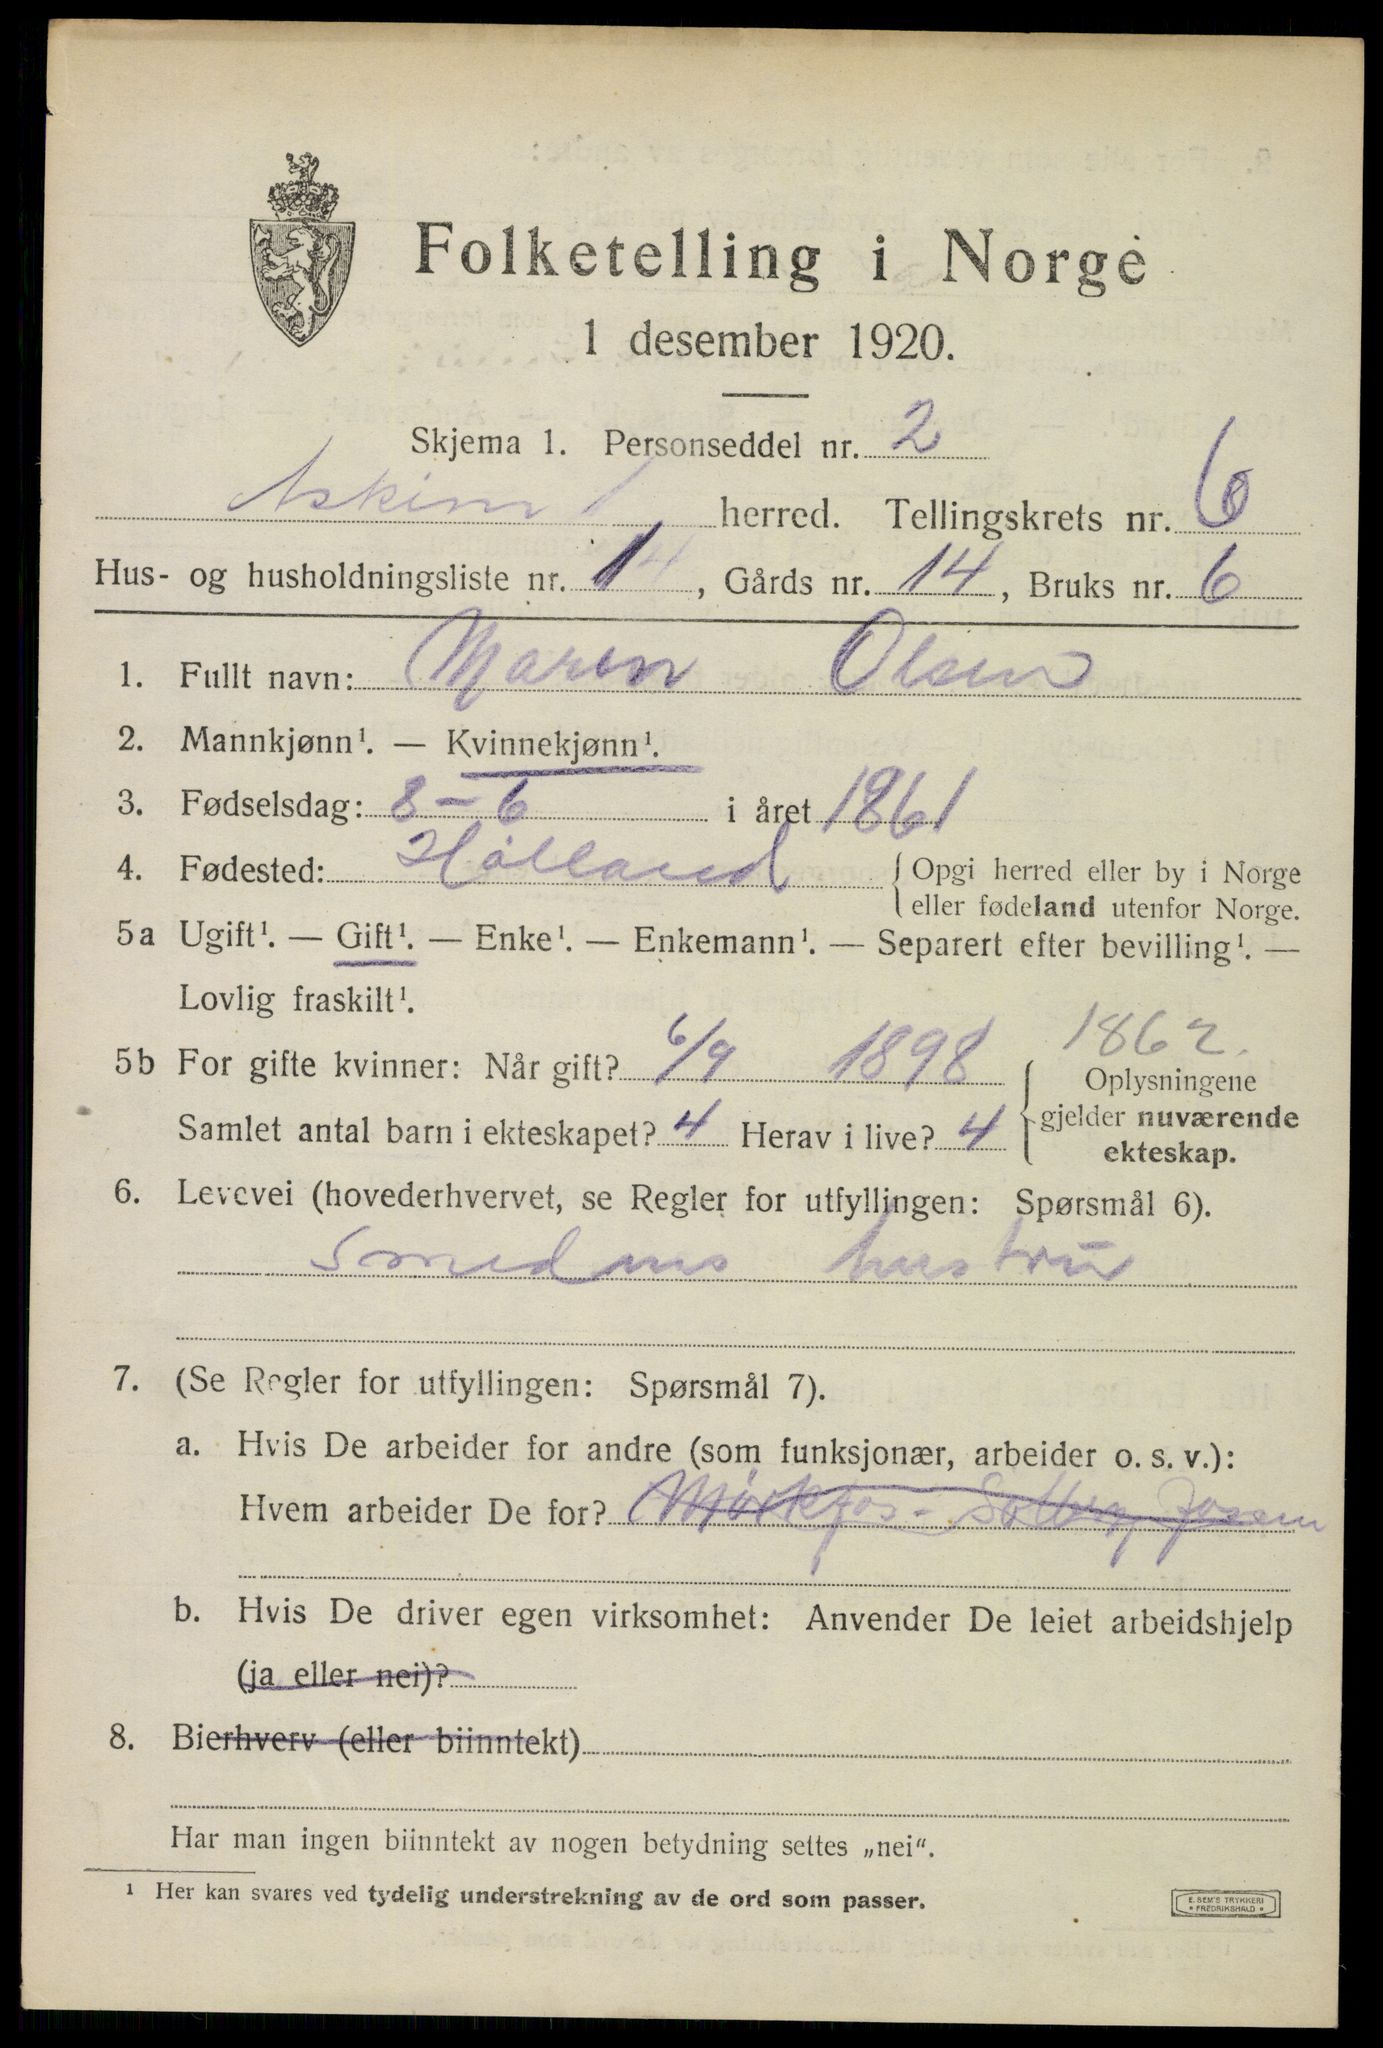 Folketelling i Norge
1 desember 1920.
Skjema 1. Personseddel nr. 2
Askim herred. Tellingskrets nr. 6
Hus- og husholdningsliste nr. 14, Gårds nr. 14, Bruks nr. 6
1. Fullt navn: Maren Olsen
2. Mannkjønn¹. — Kvinnekjønn¹.
3. Fødselsdag: 8-6 i året 1861
4. Fødested: Høllaud {Opgi herred eller by i Norge
eller fødeland utenfor Norge.
5a Ugift¹. — Gift¹. — Enke¹. — Enkemann¹. — Separert efter bevilling¹. —
Lovlig fraskilt¹.
1862.
5b For gifte kvinner: Når gift? 6/9 1898 {Oplysningene
gjelder nuværende
Samlet antal barn i ekteskapet? 4 Herav i live? 4
ekteskap.
6. Levevei (hovederhvervet, se Regler for utfyllingen: Spørsmål 6).
Smedens hustru
7. (Se Regler for utfyllingen: Spørsmål 7).
a. Hvis De arbeider for andre (som funksjonær, arbeider o. s. v.):
Hvem arbeider De for? Mørkfos-Solbergfossen
b. Hvis De driver egen virksomhet: Anvender De leiet arbeidshjelp
(ja eller nei)?
8. Bierhverv (eller biinntekt)
Har man ingen biinntekt av nogen betydning settes „nei“.
¹ Her kan svares ved tydelig understrekning av de ord som passer.
E. SEM'S TRYKKERI
• FREDRIKSHALD •